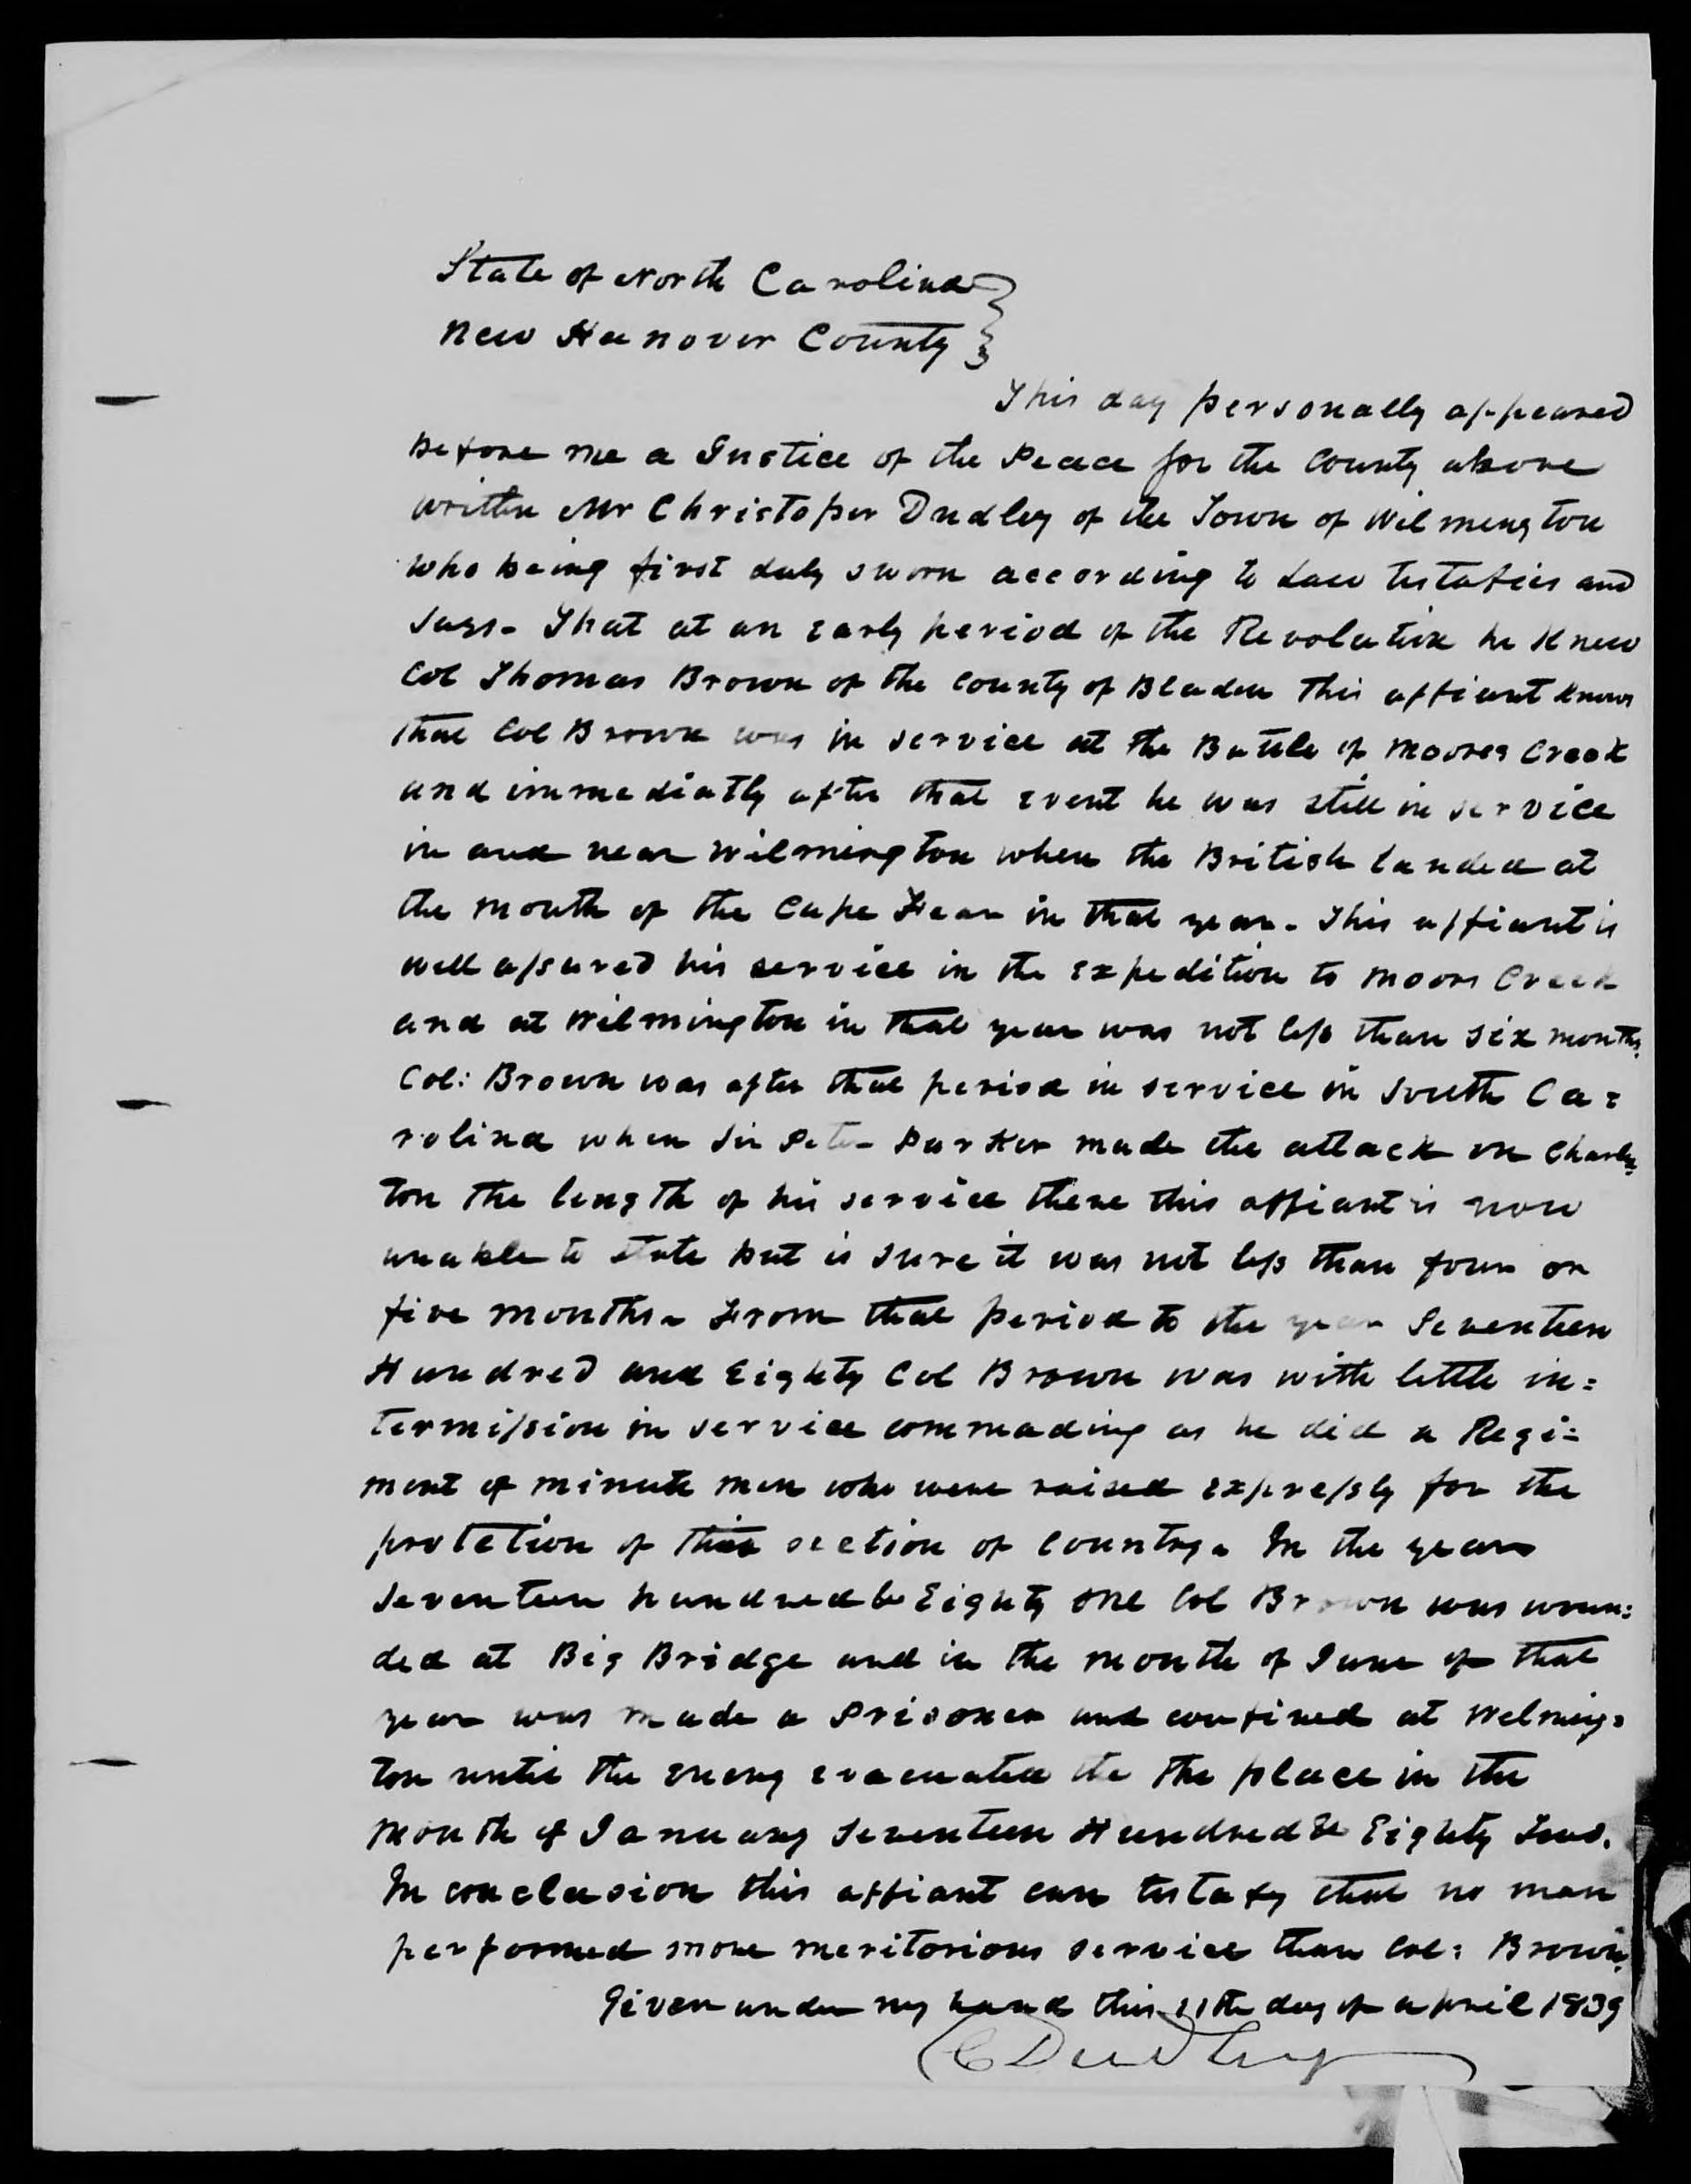 State of North Carolina }
New Hanover County }
This day personally appeared
before me a Justice of the Peace for the County above
written Mr Christoper Dudley of the Town of Wilmington
who being first duly sworn according to Law testafies and
says - That at an early period of the Revolution he Knew
Col Thomas Brown of the County of Bladen This affiant knows
that Col Brown was in service at the Battle of Moores Creek
and immediatly after that event he was still in service
in and near Wilmington when the British landed at
the mouth of the Cape Fear in that year - This affiant is
well assured his service in the Expedition to Moors Creek
and at Wilmington in that year was not less than six months.
Col: Brown was after that period in service in South Ca=
rolina when Sir Peter Parker made the attack on Charles
ton The length of his service there this affiant is now
unable to state but is sure it was not less than four or
five months - From that period to the year Seventeen
Hundred and Eighty Col Brown was with little in=
termission in service commading as he did a Regi=
ment of minute men who were raised expressly for the
protetion of this section of Country. In the year
Seventeen hundred & Eighty one Col Brown was woun=
ded at Big Bridge and in the month of June of that
year was made a Prisoner and confined at Welming=
ton until the enemy evacuated the the place in the
Month of January Seventeen Hundred & Eighty Two.
In conclusion this affiant can testafy that no man
performed more meritorious service than Col: Brown.
Given under my hand this 11th day of april 1839
C Dudley